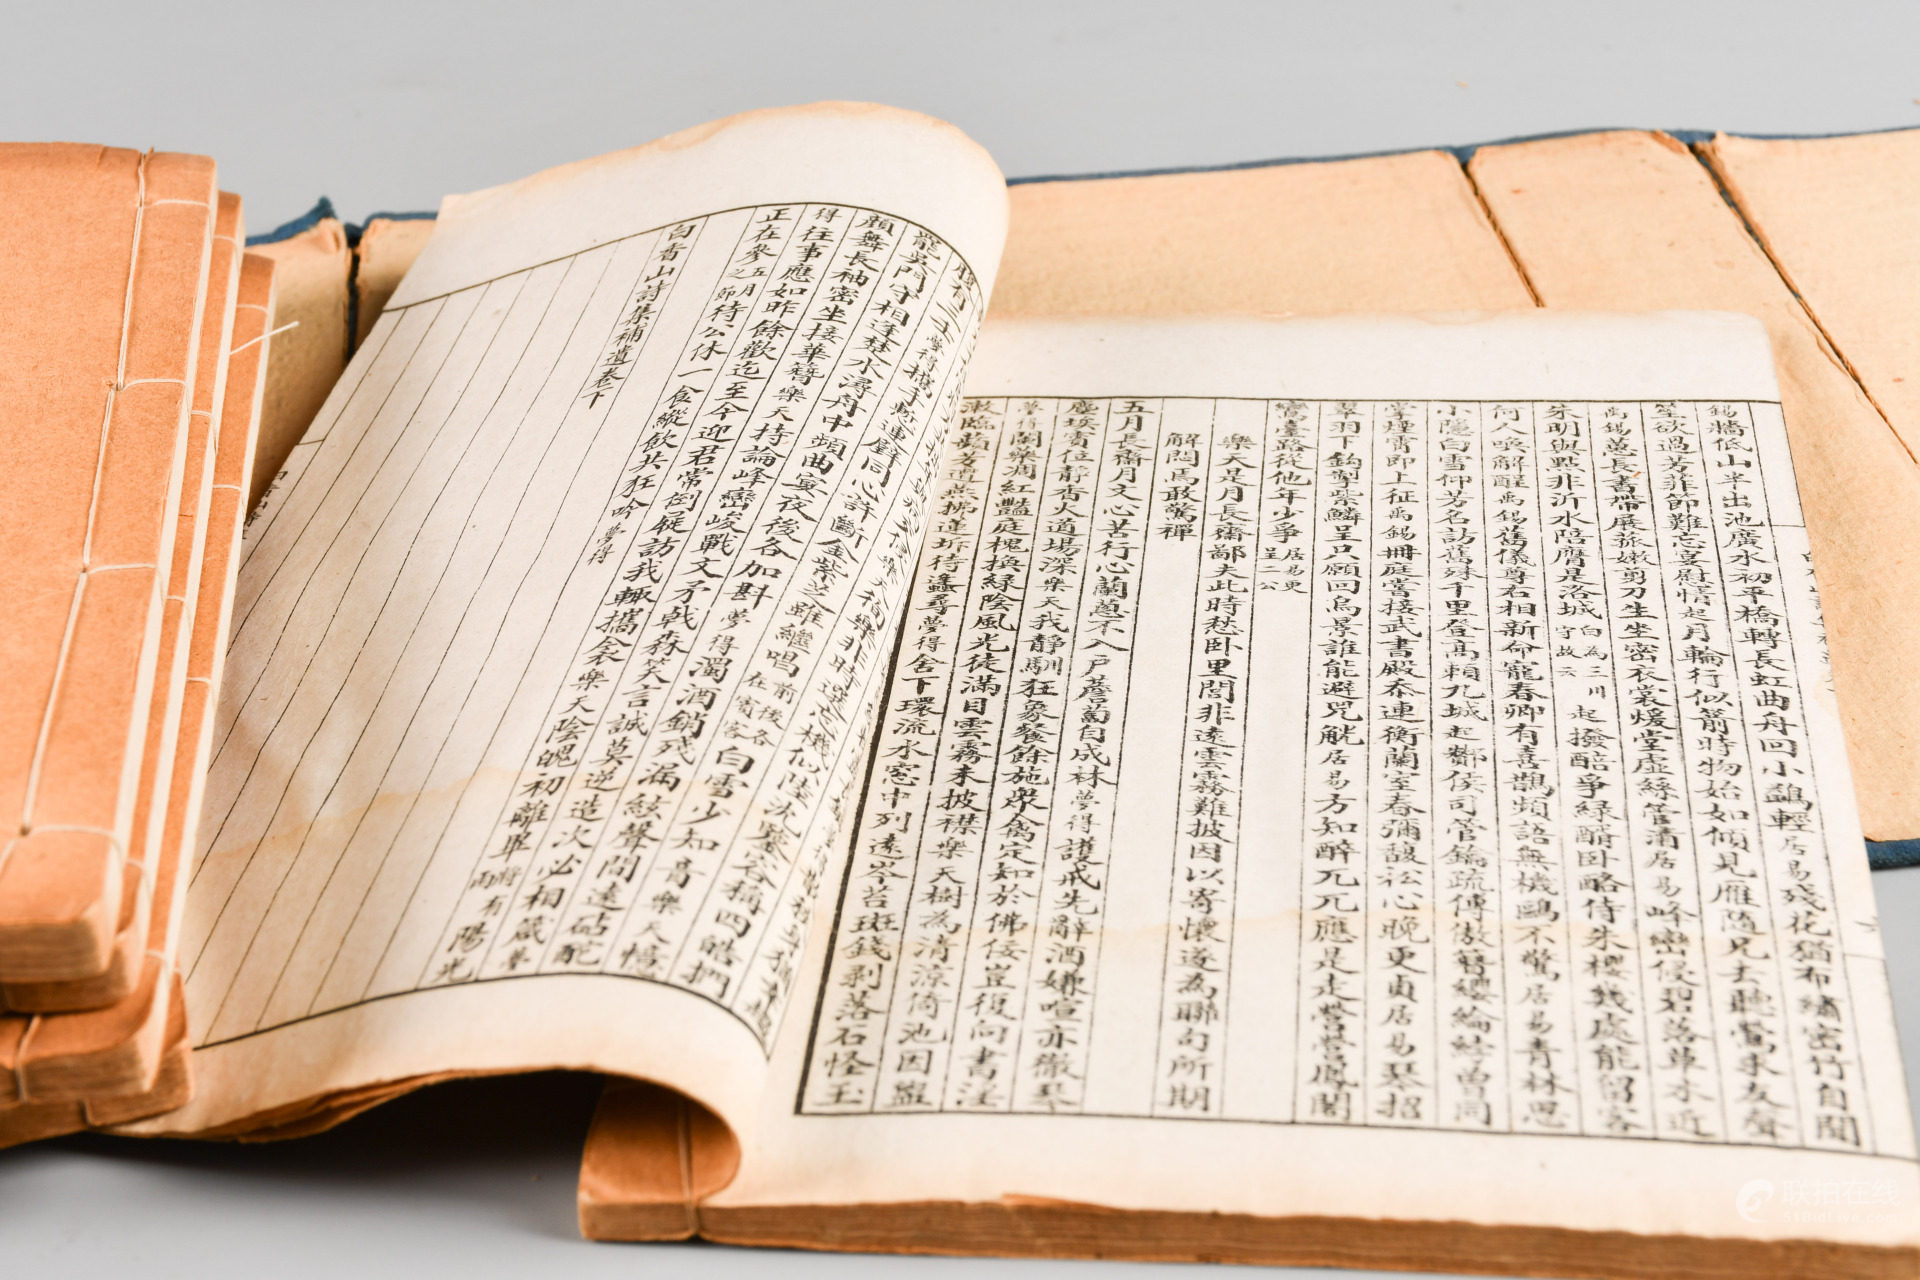 錫牆低山半出池廣水初平橋轉長虹曲舟回小鷁輕居易殘花猶布繡密竹自聞
笙欲過芳菲節難忘宴慰情起月輪行似箭時物始如傾見雁隨兄去聽鶯求友聲
禹錫蕙長書帶展菰嫩剪刀生坐密衣裳煖堂虛絲管清居易峰巒侵碧落草木近
朱明與點非沂水陪膺是洛城白為三川守故云起撥醅爭綠醑臥酪侍朱櫻幾處能留客
何人喚解酲禹錫舊儀尊右相新命寵春卿有喜鵲頻語無機鷗不驚居易青林思
小隱白雪仰芳名訪舊殊千里登高賴九城起酇侯司管鑰疏傅傲簪纓綸綍曾同
掌煙霄即上征禹錫冊庭嘗接武書殿忝連衡蘭室春彌馥松心晚更貞居易琴招
翠羽下鉤掣紫鱗呈只願回烏景誰能避兕觥居易方知醉兀兀應是走營營鳳閣
鸞臺路從他年少爭居易更呈二公
樂天是月長齋鄙夫此時愁臥里閭非遠雲霧難披因以寄懷遂為聯句所期
解悶焉敢驚禪
五月長齋月文心苦行心蘭蔥不入戶薝蔔自成林夢得護戒先辭酒嫌喧亦徹琴
塵埃賓位靜香火道場深樂天我靜馴狂象餐餘施眾禽定知於佛佞豈復向書淫
夢得闌藥凋紅豔庭槐換綠陰風光徒滿目雲霧未披襟樂天樹為清涼倚池因盥
漱臨蘋芳遭燕拂蓮坼待蜂尋夢得舍下環流水窓中列遠岑苔斑錢剝落石怪玉
罷吳門守相逢楚水潯舟中頻曲宴夜後各加斟夢得濁酒銷殘漏絃聲間遠砧酡
顏舞長袖密坐接華簪樂天持論峰巒峻戰文矛戟森笑言誠莫逆造次必相箴夢
得往事應如昨餘歡迄至今迎君常倒屣訪我輒攜衾樂天陰魄初離畢將有雨陽光
正在參五月之節待公休一食縱飲共狂吟夢得
白香山詩集補遺卷下
联拍在线
51bidlive.com